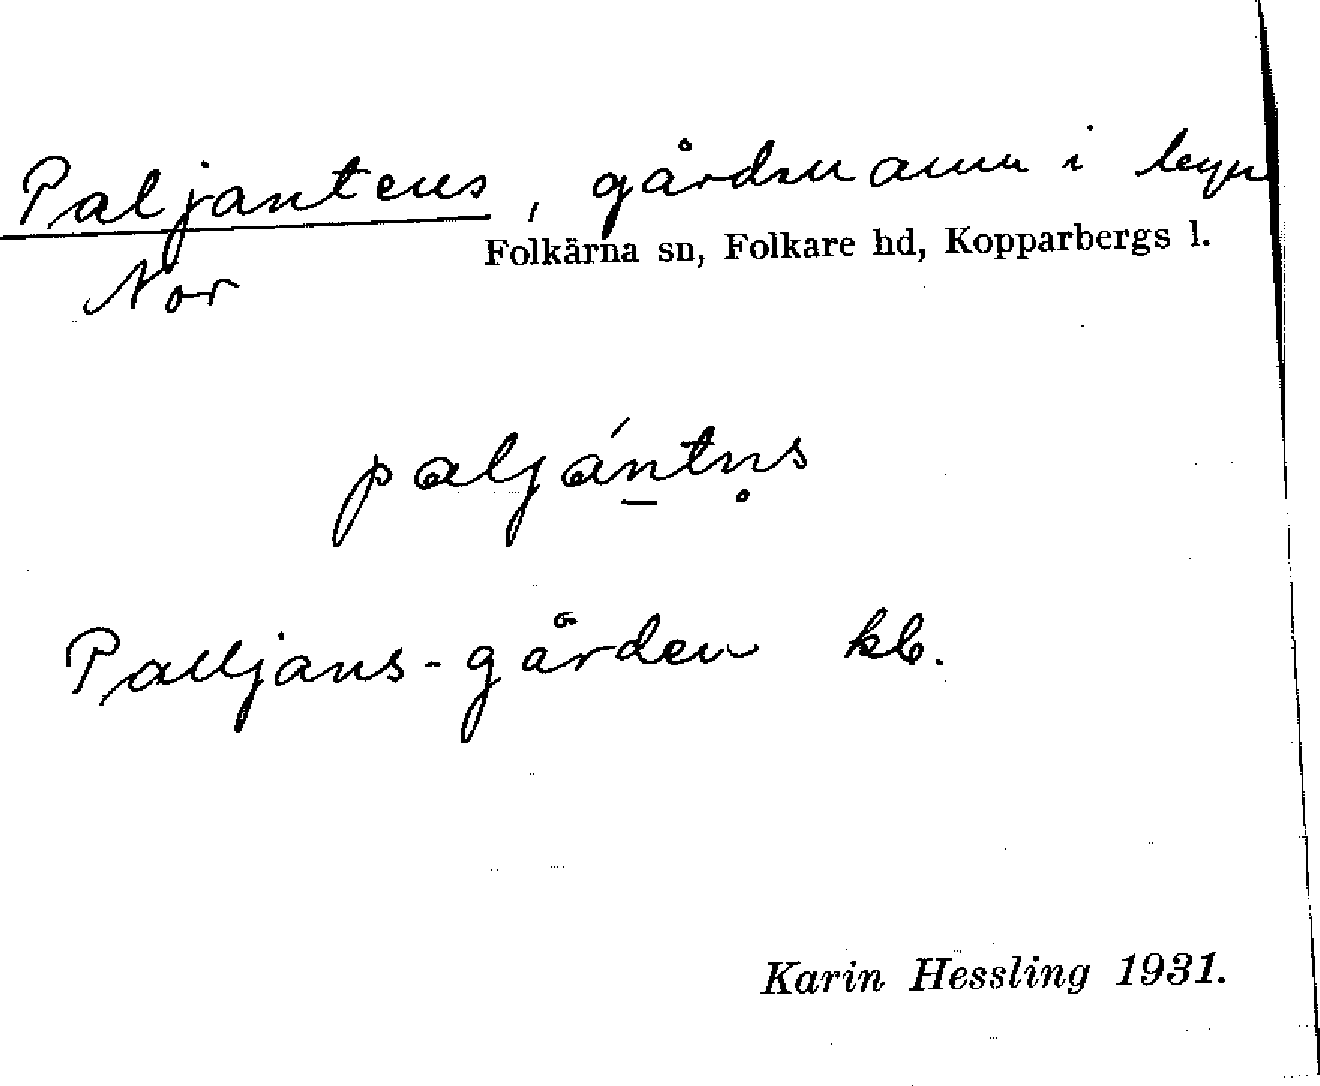 Paljantens, gårdsnamn i byn
Folkärna sn, Folkare hd, Kopparbergs l.
Nor
paljántn̥s
Palljans-gården kb.
Karin Hessling 1931.